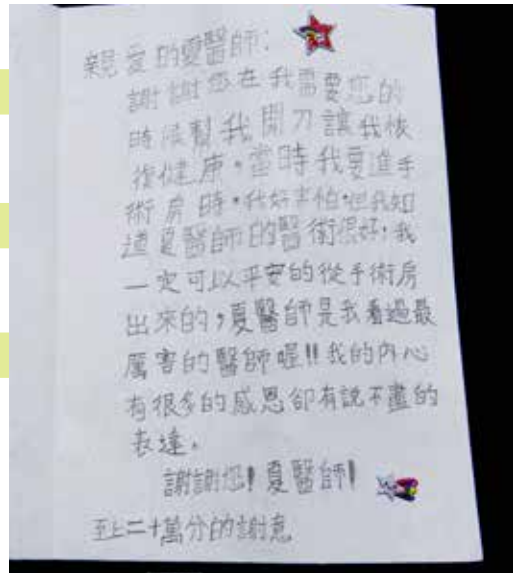 親愛的夏醫師：
謝謝您在我需要您的
時候幫我開刀讓我恢
復健康。當時我要進手
術房時，我好害怕，但我知
道夏醫師的醫術很好，我
一定可以平安的從手術房
出來的，夏醫師是我看過最
厲害的醫師喔!!我的內心
有很多的感恩卻有說不盡的
表達。
謝謝您!夏醫師!
至上二十萬分的謝意